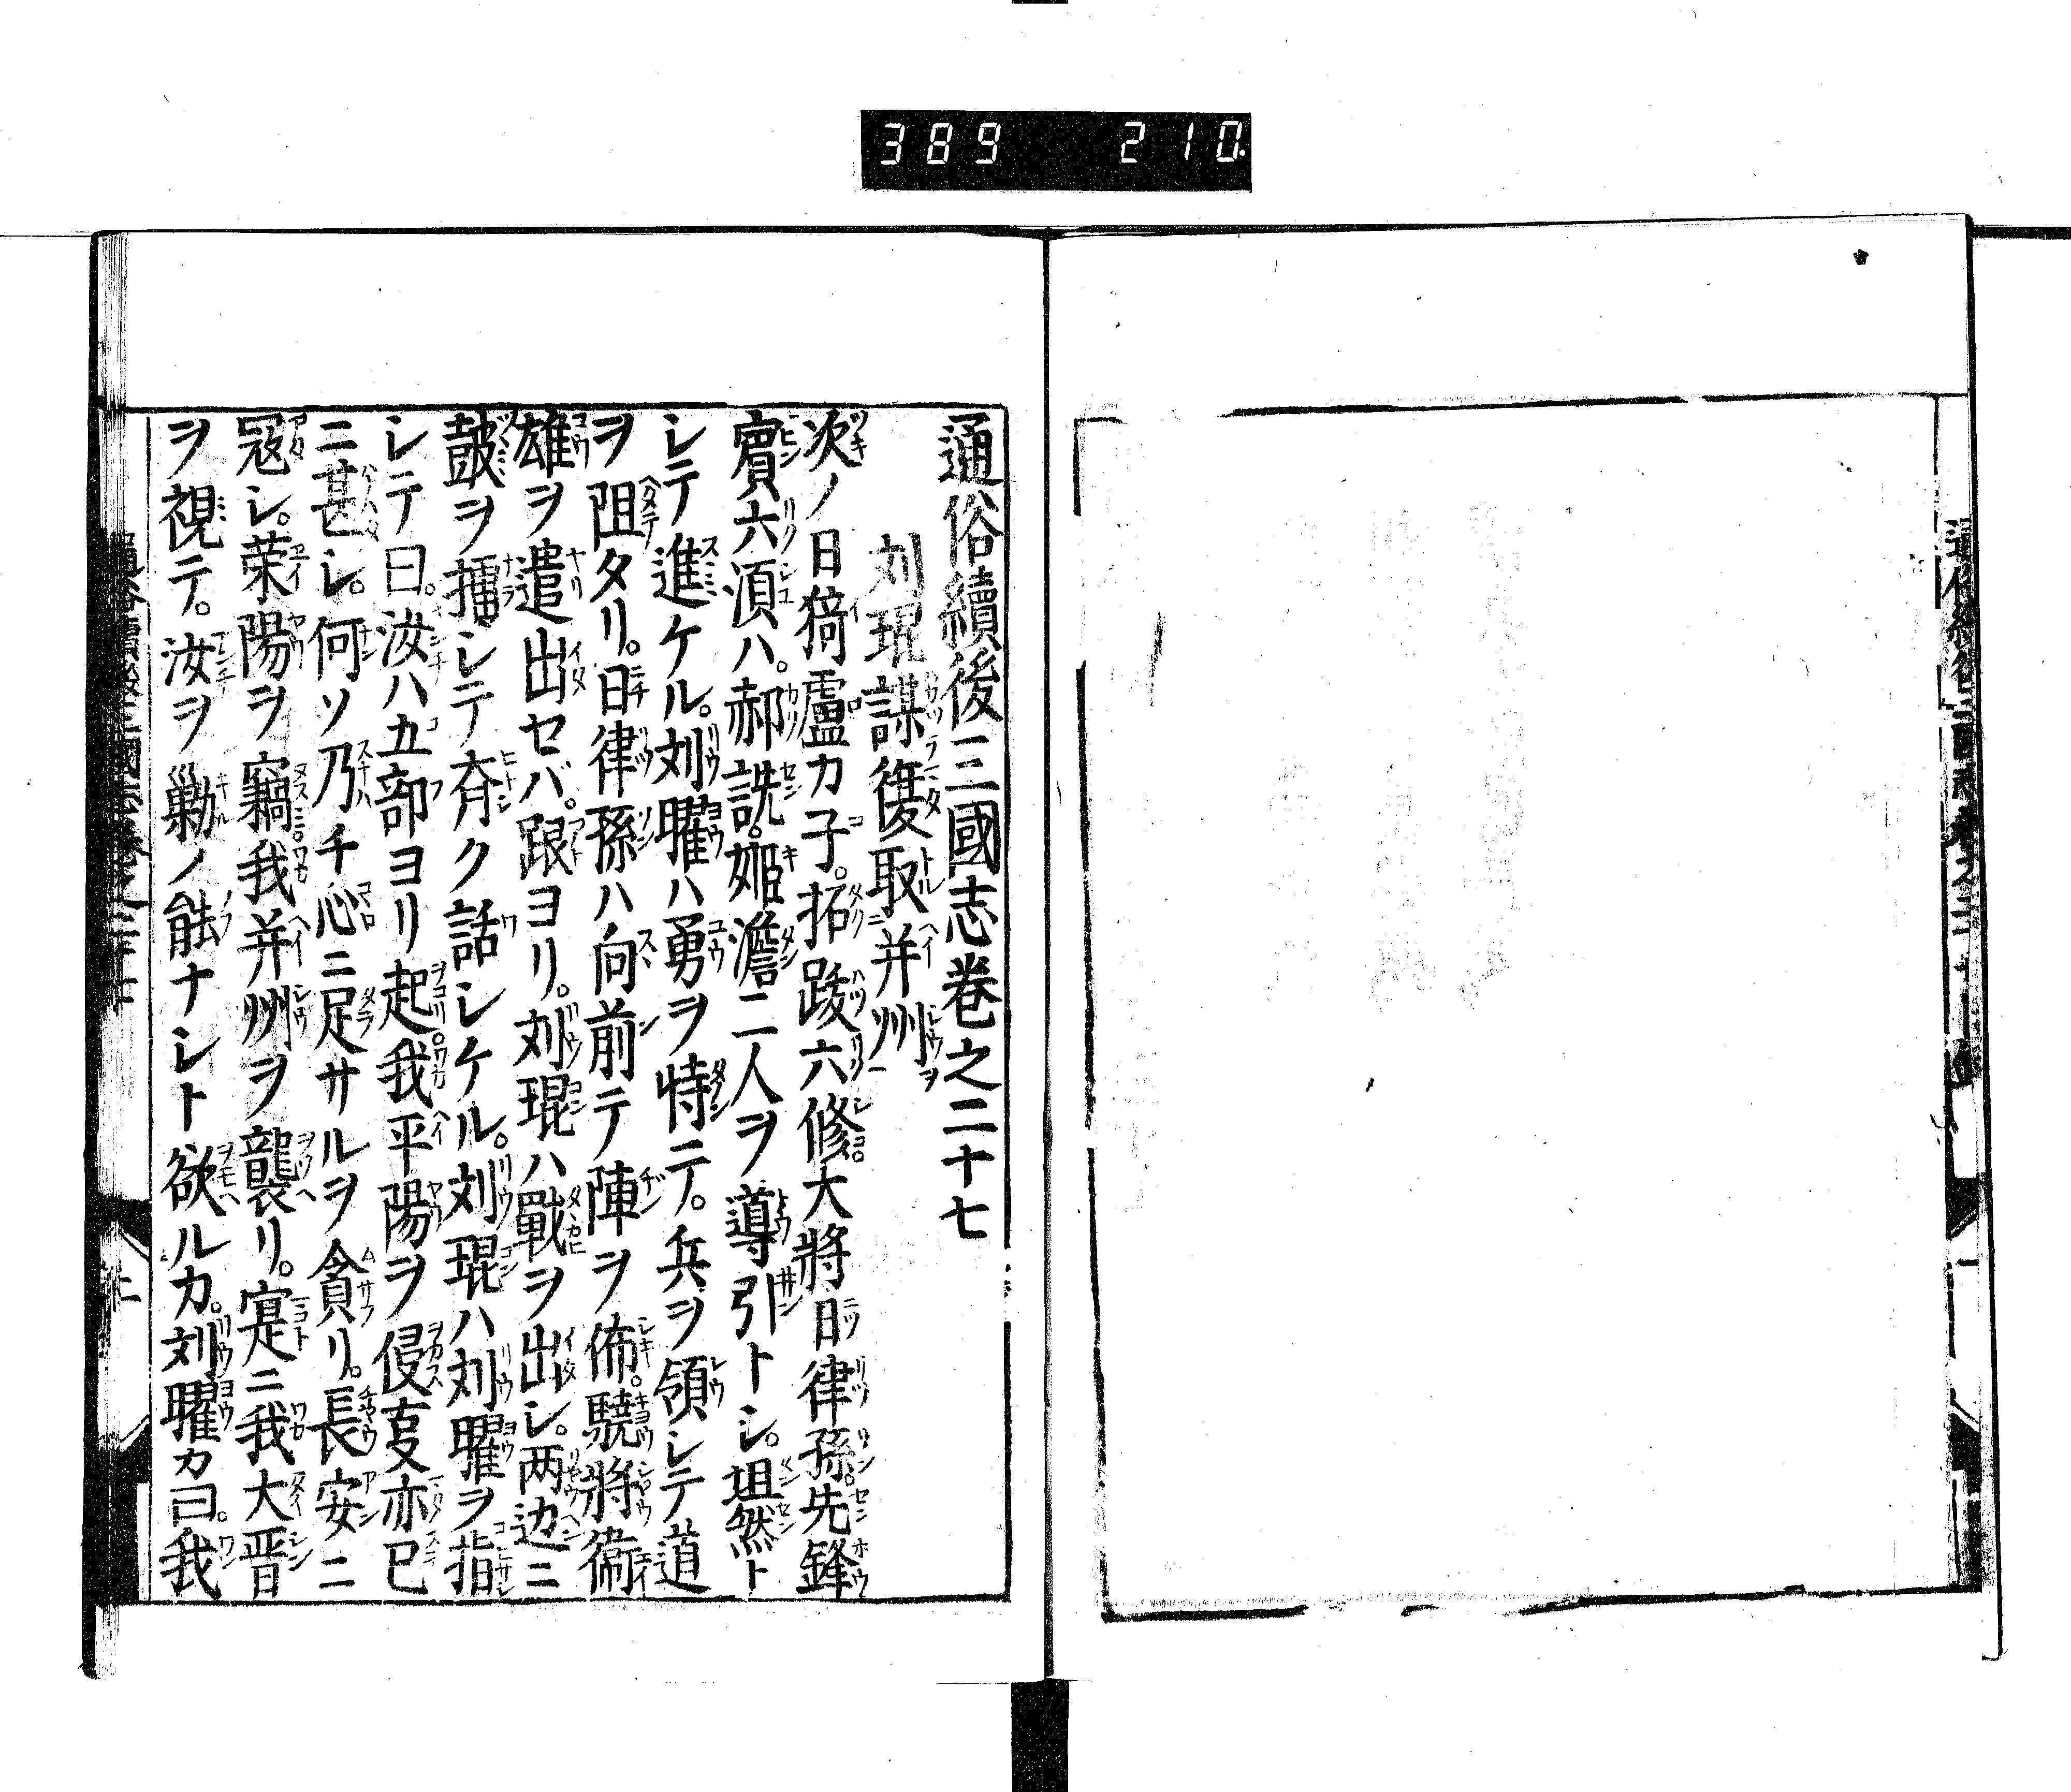 389 210
通俗續後三國志卷之二十七
刘琨謀復取并州
次ノ日猗盧カ子。拓跋六修大將日律孫。先鋒
賓六湏ハ。郝詵。姫澹二人ヲ導引トシ。坦然ト
シテ進ケル。刘曜ハ勇ヲ恃テ。兵ヲ領シテ道
ヲ阻タリ。日律孫ハ向前テ陣ヲ佈。驍將衞
雄ヲ遣出セバ。跟ヨリ。刘琨ハ戰ヲ出シ。两边ニ
皷ヲ擂シテ斉ク話シケル。刘琨ハ刘曜ヲ指
シテ曰。汝ハ五部ヨリ起。我平陽ヲ侵夏亦已
ニ甚シ。何ソ乃チ心ニ足サルヲ貪リ。長安ニ
冦シ。荣陽ヲ竊。我并州ヲ襲リ。寔ニ我大晋
ヲ視テ。汝ヲ勦ノ能ナシト欲ルカ。刘曜カ曰。我